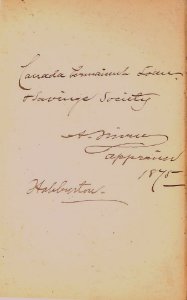 Canada Permanent Loan
& Savings Society
A. Niven
Appraiser
1875
Haliburton